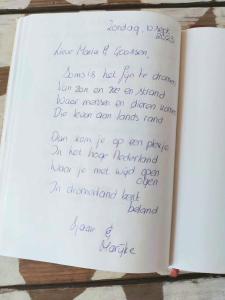 Zondag, 10 sept.
2023
Lieve Maria & Goossen,
Soms is het fijn te dromen
Van zon en zee en strand
Waar mensen en dieren wonen
Die leven aan lands rand
Dan kom je op een plekje
In het hoge Nederland
Waar je met wijd open
ogen
In dromenland bent
beland
Sjaan &
Marijke